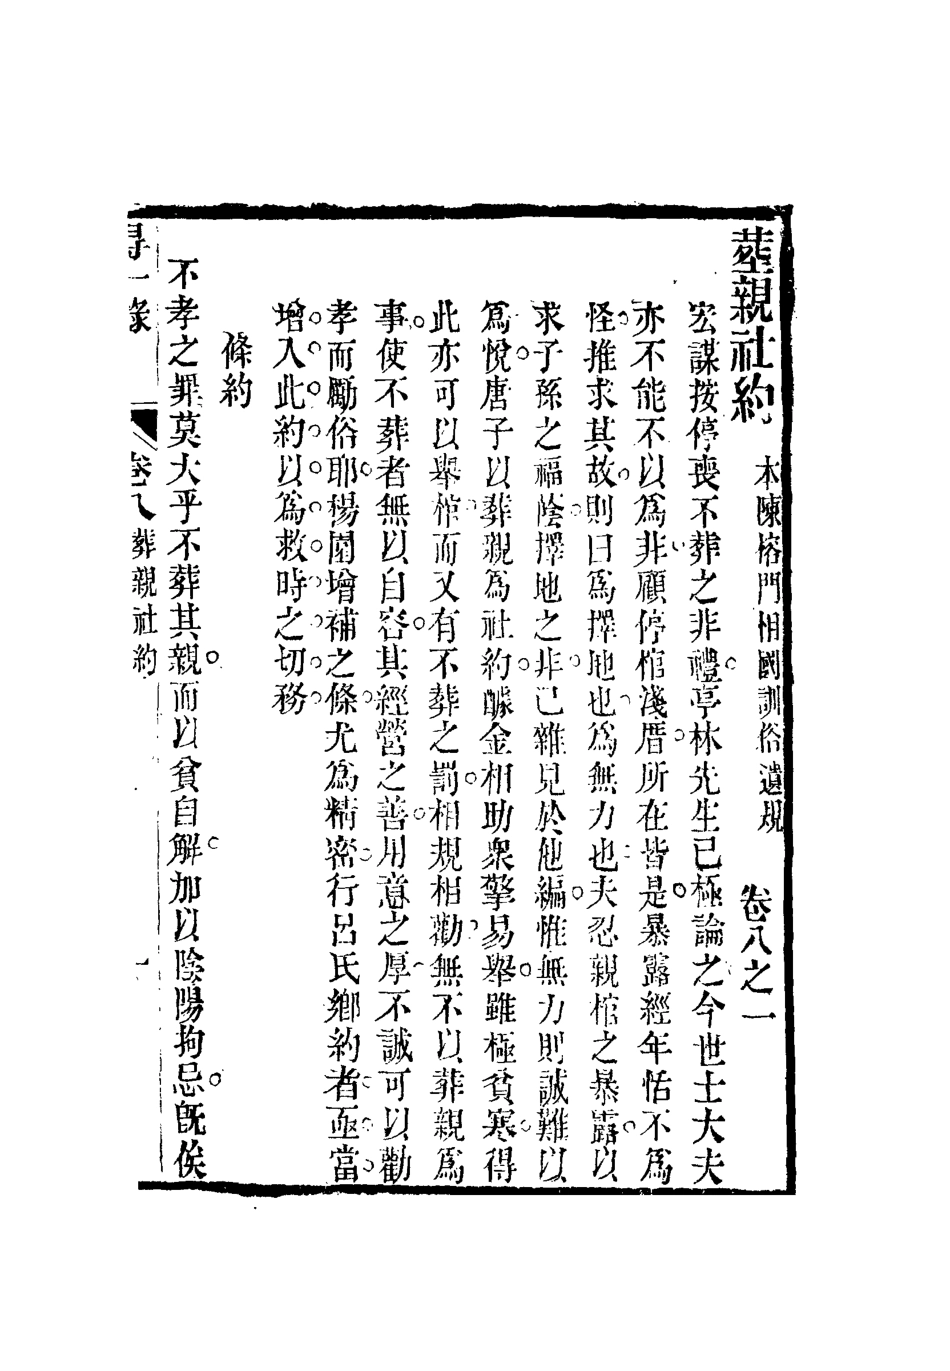 葬親社約　本陳榕門相國訓俗遺規　卷八之一
宏謀按停喪不葬之非禮亭林先生已極論之今世士大夫
亦不能不以爲非顧停棺淺厝所在皆是暴露經年恬不爲
怪推求其故則曰爲擇地也爲無力也夫忍親棺之暴露以
求子孫之福陰擇地之非已雜見於他編惟無力則誠難以
爲悅唐子以葬親爲社約醵金相助衆擎易舉雖極貧寒得
此亦可以舉棺而又有不葬之罰相規相勸無不以葬親爲
事使不葬者無以自容其經營之善用意之厚不誠可以勸
孝而勵俗耶楊園增補之條尤爲精密行呂氏鄉約者亟當
增入此約以爲救時之切務
條約
不孝之罪莫大乎不葬其親而以貧自解加以陰陽拘忌旣俟
得一錄　卷八　葬親社約　一